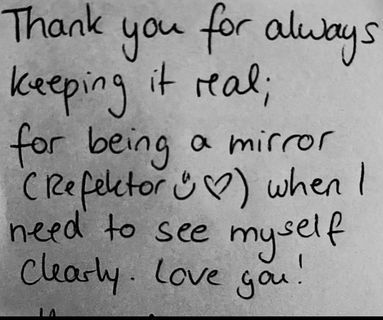 Thank you for always
keeping it real;
for being a mirror
(Refektor ☺♡) when I
need to see myself
clearly. Love you!